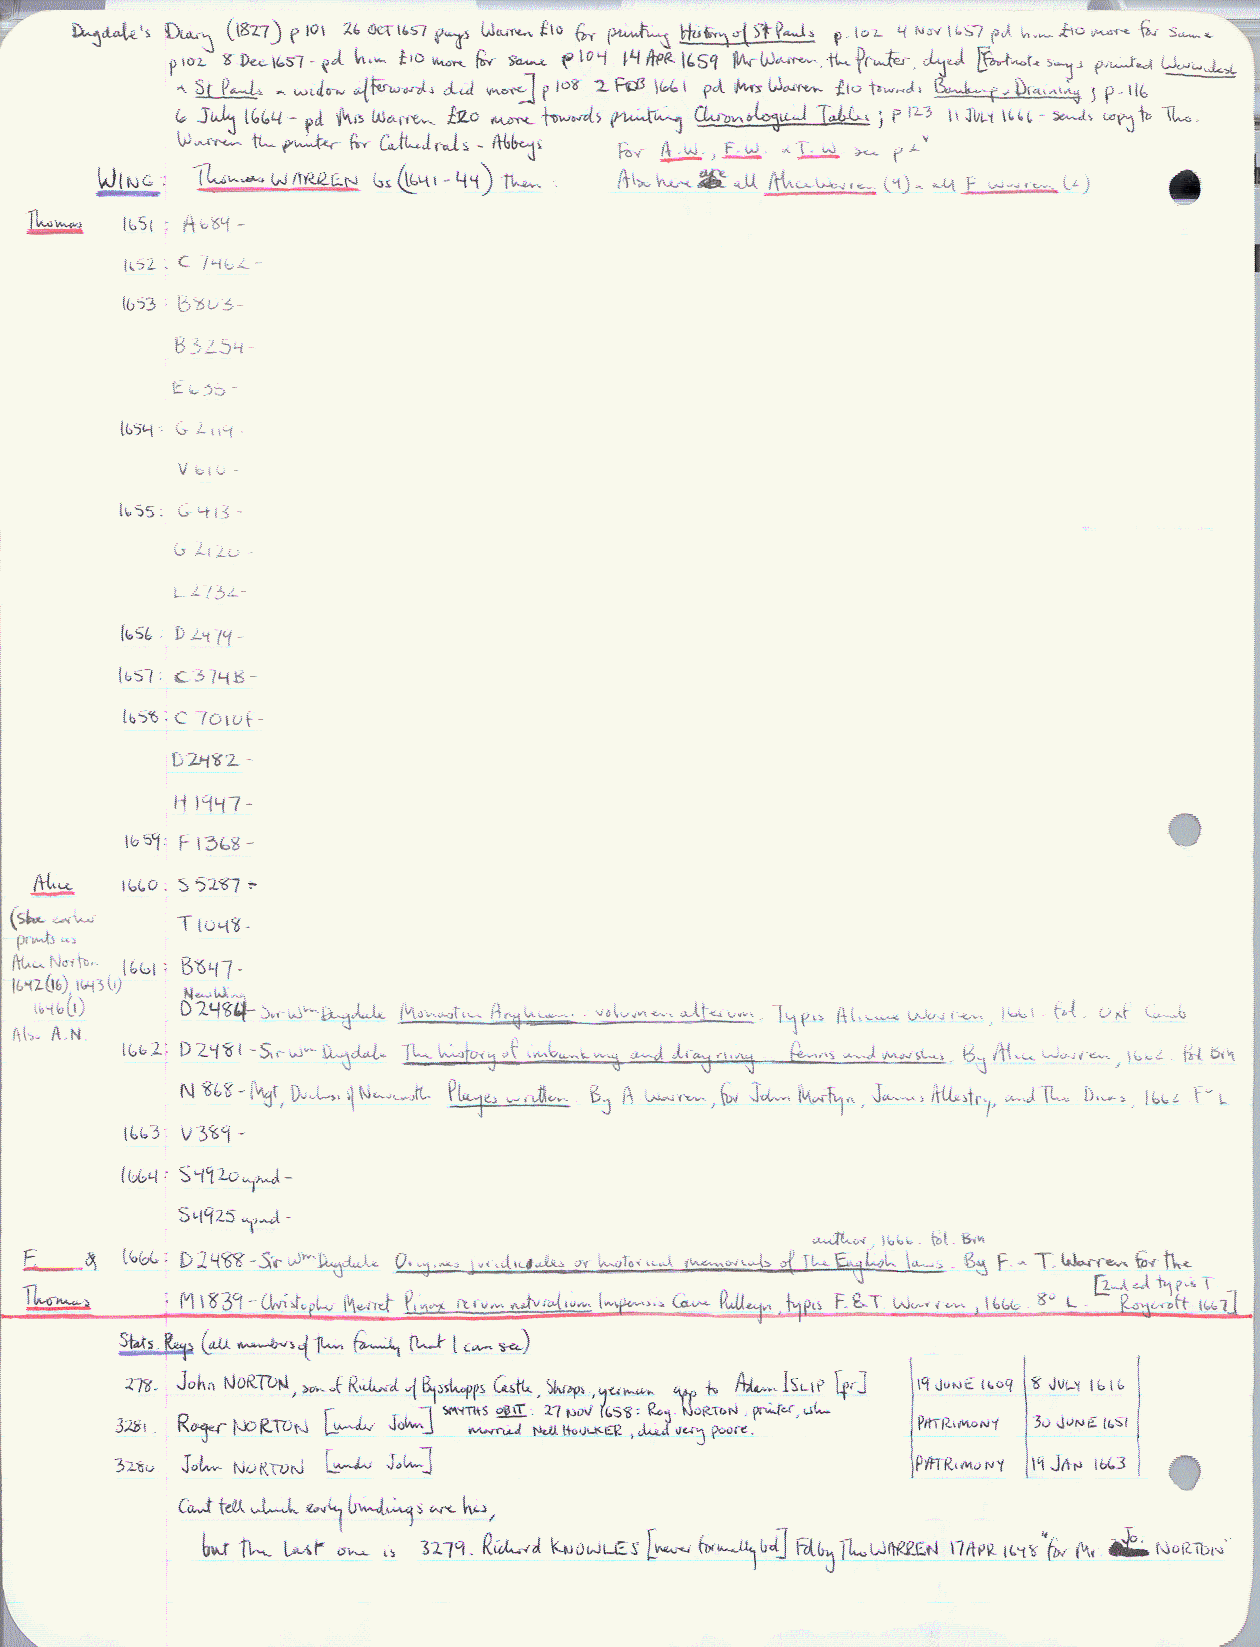 Dugdale's Diary (1827) p 101 26 OCT 1657 pays Warren £10 for printing History of St Pauls p. 102 4 Nov 1657 pd him £10 more for same
p 102 8 Dec 1657 - pd him £10 more for same p 104 14 APR 1659 Mr Warren, the Printer, dyed [Footnote says printed
St Pauls widow afterwards did more] p 108 2 FEB 1661 pd Mrs Warren £10 towards Draining ; p. 116
6 July 1664 - pd Mrs Warren £20 more towards printing Chronological Tables ; p 123 11 JULY 1666 - sends copy to Tho.
Warren the printer for Cathedrals - Abbeys For A.W., F.W. T.W see p
WING: Thomas WARREN bs (1641-44) then : Also here are all Alice Warren (4) all F Warren (2)
Thomas 1651: A684 -
1652: C 7462 -
1653: B803 -
B3254 -
E635 -
1654: G 2119 -
V 610 -
1655: G 413 -
G 2120 -
L 2732 -
1656: D 2479 -
1657: C 374B -
1658: C 7010F -
D2482 -
H 1947 -
1659: F 1368 -
Alice 1660: S 5287 -
(She earlier
prints as T 1048 -
Alice Norton 1661: B847 -
1642 (16), 1643 (1) New Wing
1646 (1) D 2484 - Sir Wm Dugdale volumen alterum. Typis Warren, 1661. fol. Oxf Camb
Also A.N. 1662: D2481 - Sir Wm Dugdale The history of imbanking and drayning fenns and marshes. By Alice Warren, 1662. fol Brn
N 868 - Mgt, Duchess of Newcastle Playes written. By A Warren, for John Martyn, James Allestry, and Tho Dicas, 1662 Fo L
1663: V 389 -
1664: S 4920 apud -
S4925 apud -
author, 1666. fol. Brn
F. & 1666: D2488 - Sir Wm Dugdale Origines juridiciales or historical memorials of the English laws. By F. T. Warren for the
[2nd ed typis T
Thomas : M1839 - Christopher Merret Pinax rerum naturalium Impensis Cave Pulleyn, typis F. & T Warren, 1666. 8o L. Roycroft 1667]
Stats Regs (all members of this family that I can see)
278. John NORTON, son of Richard of Bysshopps Castle, Shrops, yeoman app to Adam ISLIP [pr] 19 JUNE 1609 8 JULY 1616
3281. Roger NORTON [under John] SMYTHS OBIT: 27 NOV 1658: Rog. NORTON, printer, who PATRIMONY 30 JUNE 1651
married Nell HOULKER, died very poore.
3280 John NORTON [under John] PATRIMONY 19 JAN 1663
Cant tell which early bindings are his,
but the last one is 3279. Richard KNOWLES [never formally bd] Fd by Tho WARREN 17 APR 1648 "for Mr Jo. NORTON"